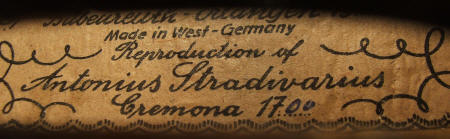 Made in West-Germany
Reproduction of
Antonius Stradivarius
Cremona 17.00